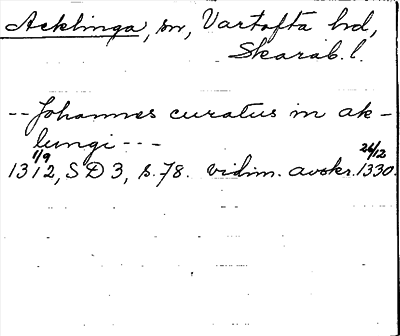 Acklinga, sn, Vartofta hd,
Skarab. l.
-- Johannes curatus in ak-
lungi ---
1/9 26/12
1312, SD 3, s. 78. vidim. avskr. 1330.